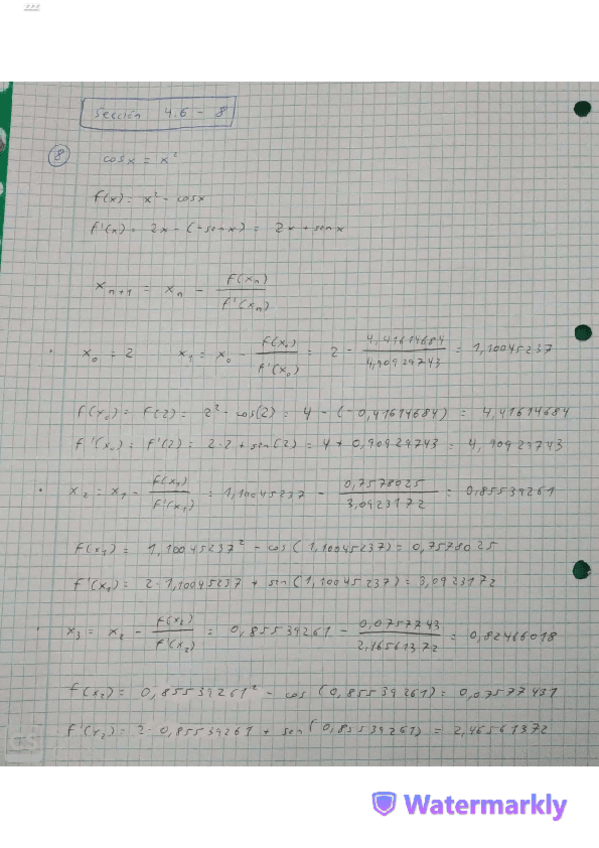 Sección 4.6 - 8
8 cosx = x²
f(x) = x² - cosx
f'(x) = 2x - (-senx) = 2x + senx
xₙ₊₁ = xₙ - f(xₙ) / f'(xₙ)
x₀ = 2 x₁ = x₀ - f(x₀) / f'(x₀) = 2 - 4,41614684 / 4,90929743 = 1,10045237
f(x₀) = f(2) = 2² - cos(2) = 4 - (-0,41614684) = 4,41614684
f'(x₀) = f'(2) = 2·2 + sen(2) = 4 + 0,90929743 = 4,90929743
x₂ = x₁ - f(x₁) / f'(x₁) = 1,10045237 - 0,7578025 / 3,0923172 = 0,85539261
f(x₁) = 1,10045237² - cos(1,10045237) = 0,7578025
f'(x₁) = 2·1,10045237 + sin(1,10045237) = 3,0923172
x₃ = x₂ - f(x₂) / f'(x₂) = 0,85539261 - 0,0757743 / 2,46561372 = 0,82466018
f(x₂) = 0,85539261² - cos(0,85539261) = 0,07577431
f'(x₂) = 2·0,85539261 + sen(0,85539261) = 2,46561372
Watermarkly